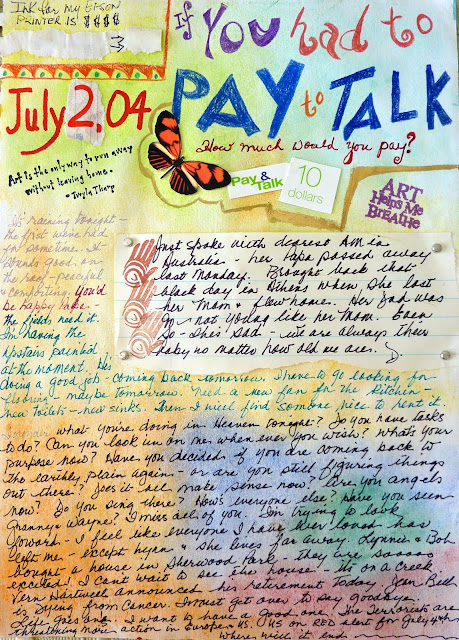 INK for my EPSON
PRINTER IS $$$$
If You had to
PAY to TALK
How much would you pay?
July 2.04
Art is the only way to run away
without leaving home -
- Twyla Tharp
Pay &
Talk
10
dollars
ART
Helps Me
BREATHE
It's raining tonight -
the first we've had
for sometime. It
sounds good on
the roof - peaceful
& comforting. You'd
be happy Mike -
the fields need it.
I'm having the
upstairs painted
at the moment. He's
Just spoke with dearest AM in
Australia - her Papa passed away
last Monday. Brought back that
black day in Athens when she lost
her Mom & flew home. Her Dad was
90 - not young like her Mom. Even
so - she's sad - we are always their
baby no matter how old we are.
doing a good job - coming back tomorrow. I have to go looking for
flooring - maybe tomorrow. Need a new fan for the kitchen -
new toilets - new sinks. Then I will find someone nice to rent it.
what you're doing in Heaven tonight? Do you have tasks
to do? Can you look in on me when ever you wish? What's your
purpose now? Have you decided if you are coming back to
the earthly plain again - or are you still figuring things
out there? Does it all make sense now? Are you angels
now? Do you sing there? How's everyone else? Have you seen
Granny & Wayne? I miss all of you. I'm trying to look
forward - I feel like everyone I have ever loved has
left me - except & she lives far away. Lynnie & Bob
bought a house in Sherwood Park - they are sooooo
excited! I can't wait to see the house - it's on a creek
Vern Hartwell announced his retirement today. Jean
is dying from Cancer. I must get over to say goodbye.
Life goes on. I want to have a good one! The Terrorists are
threatening more action in Europe & US. US on RED alert for July 4th
where will it end